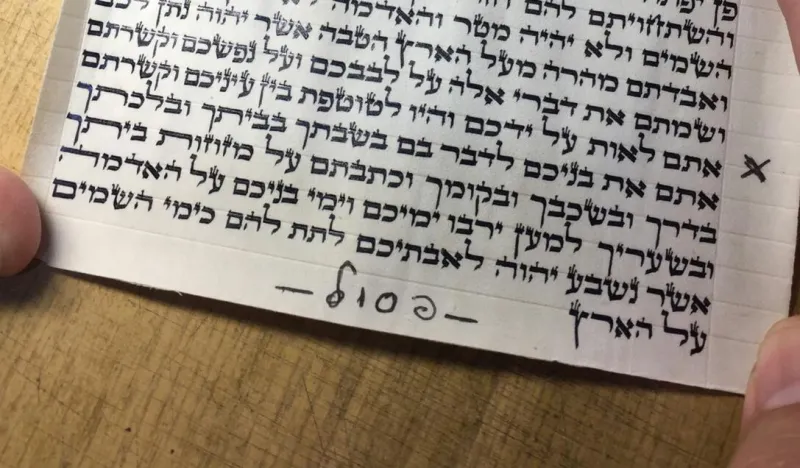 פן
והשתחויתם להם
השמים ולא יהיה מטר והאדמה
ואבדתם מהרה מעל הארץ הטבה אשר יהוה נתן לכם
ושמתם את דברי אלה על לבבכם ועל נפשכם וקשרתם
אתם לאות על ידכם והיו לטוטפת בין עיניכם וקשרתם
X
אתם את בניכם לדבר בם בשבתך בביתך ובלכתך
בדרך ובשכבך ובקומך וכתבתם על מזוזות ביתך
ובשעריך למען ירבו ימיכם וימי בניכם על האדמה
אשר נשבע יהוה לאבתיכם לתת להם כימי השמים
על הארץ
- פסול -